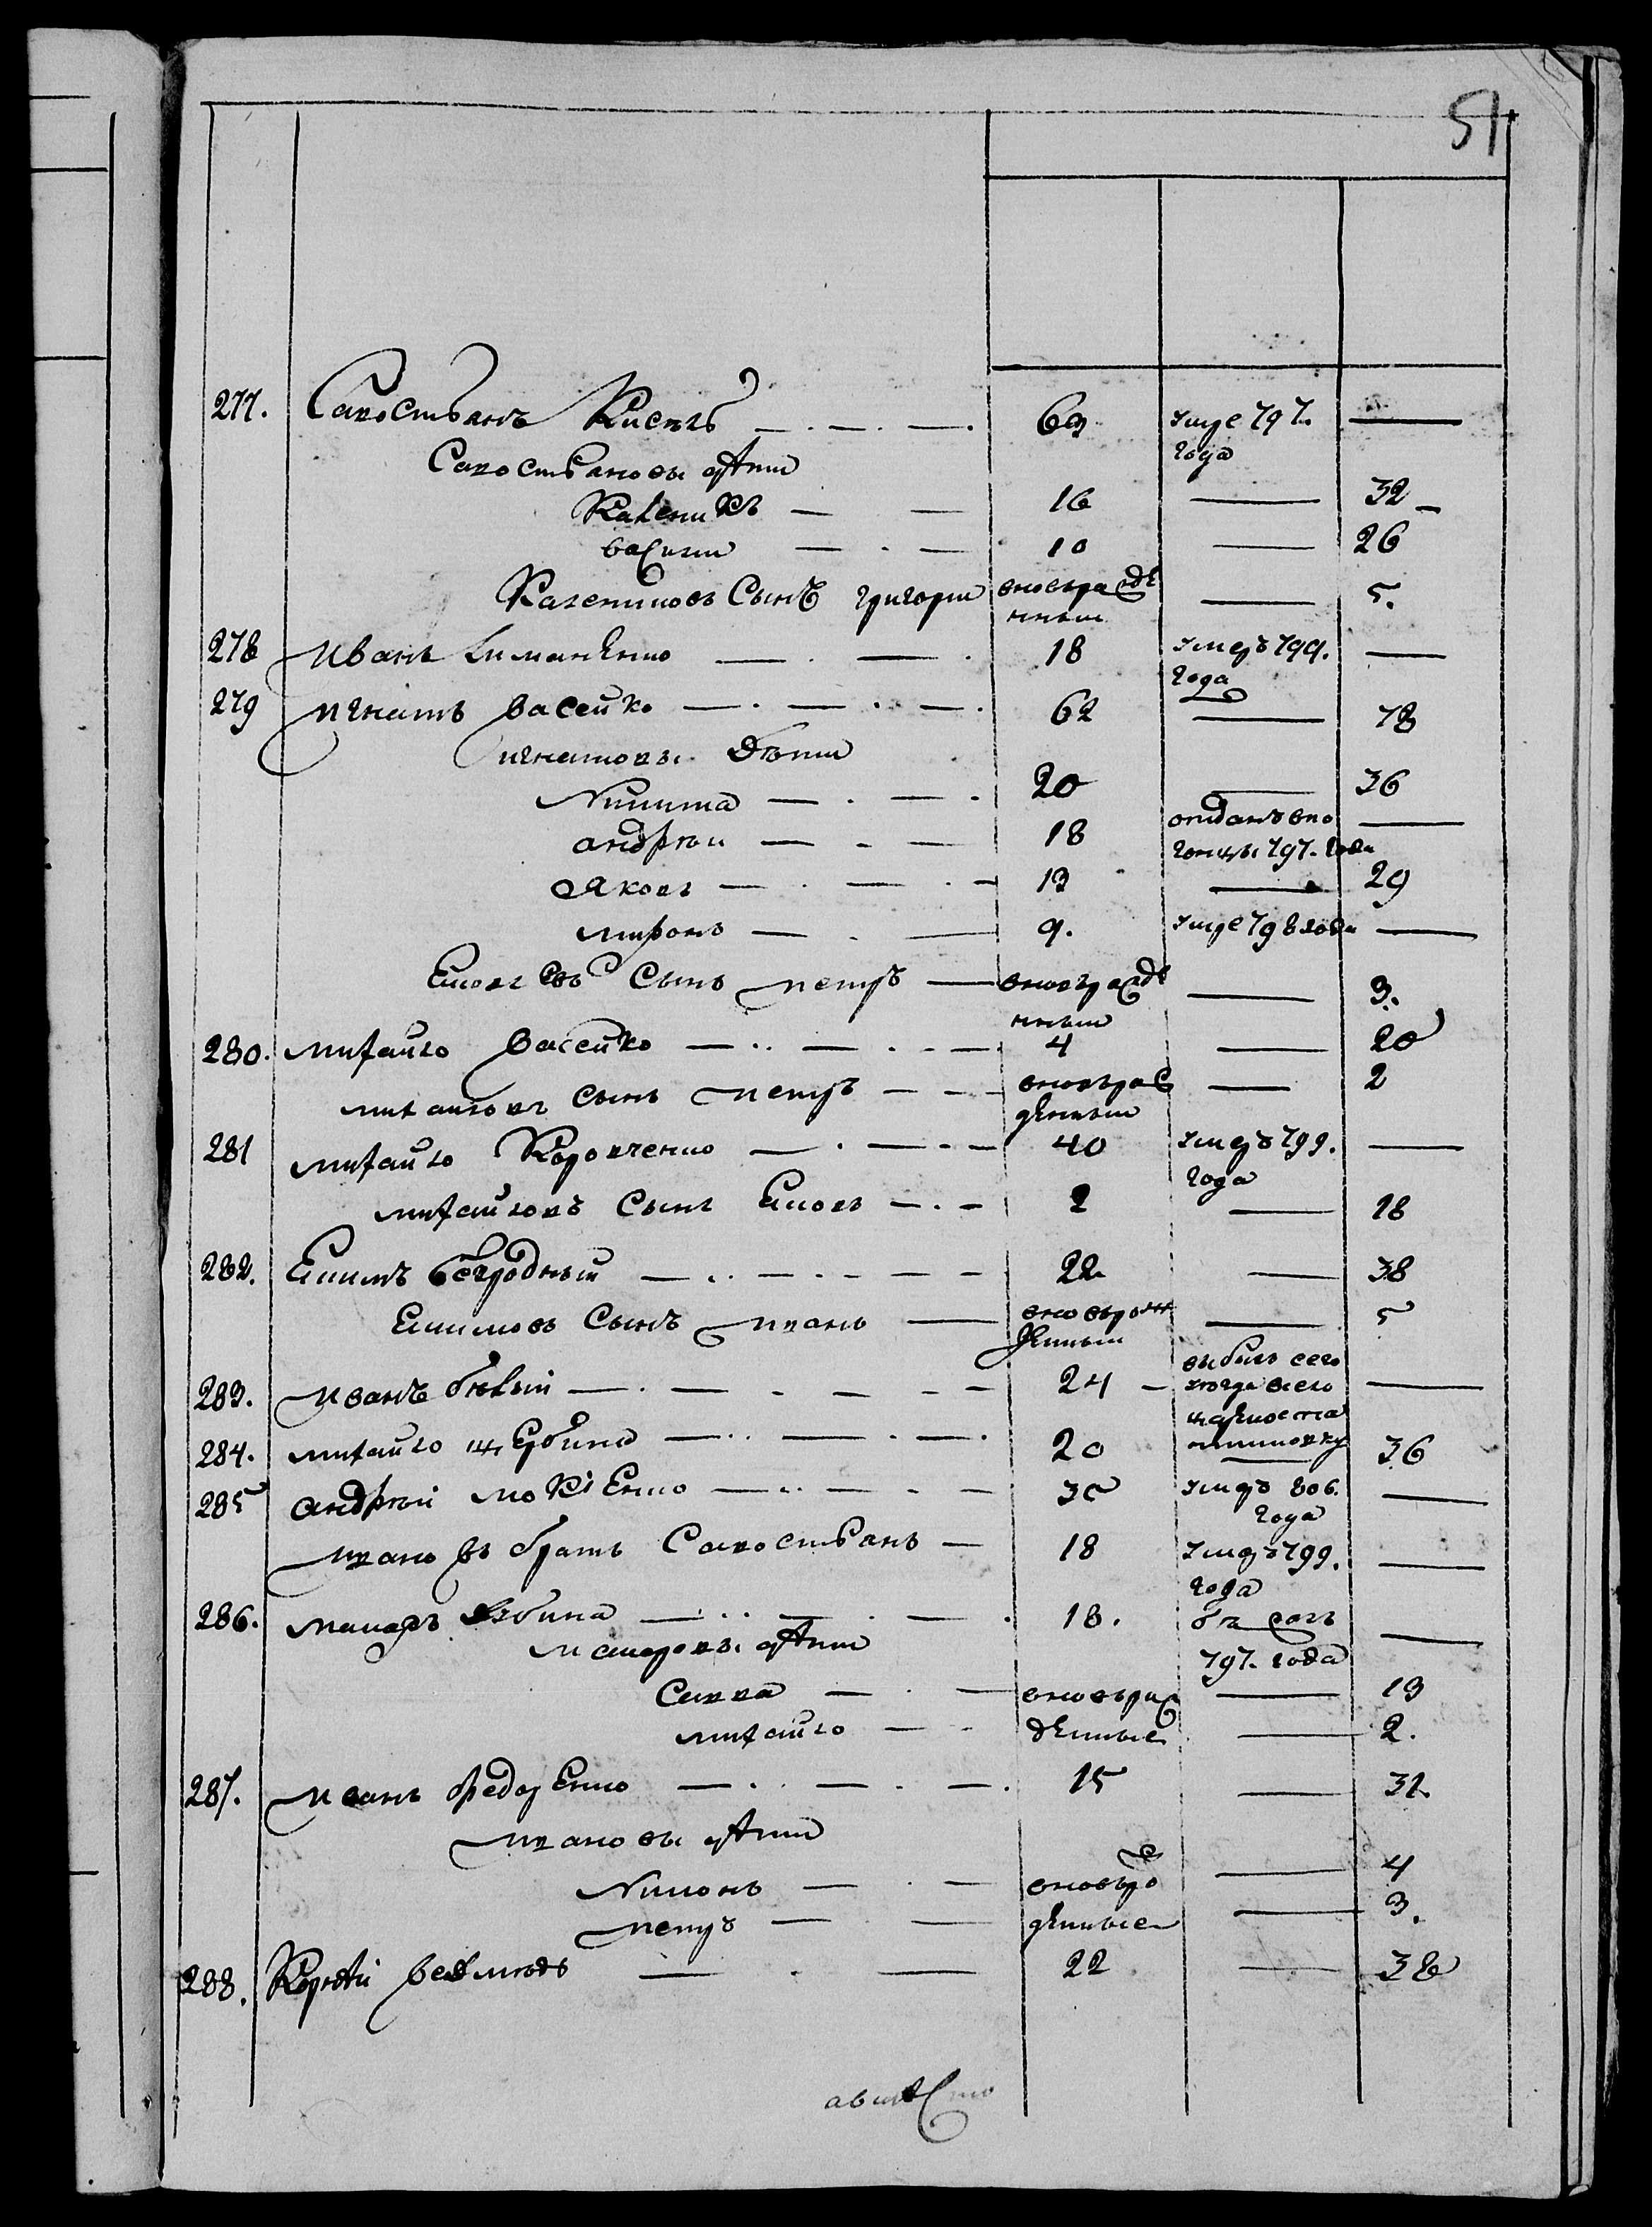 51
277. Савостьянъ Кистъ 69 умре 797.
года
Савостьяновы дѣти
Каленикъ 16 32
василий 10 26
Калениковъ Сынъ григорий вновърожде 5.
нный
278 иванъ Лиманенко 18 умеръ 799.
года
279 игнатъ васейко 62 78
игнатовы дѣти
Никита 20 36
андрѣй 18 отданъ впо
гонцы 797. года
яковъ 13 29
миронъ 9. умре 798 года
Яковлевъ Сынъ петръ вноврожде 3.
нный
280. михайло васейко 4 20
михайловъ сынъ петръ вноврож 2
денный
281 михайло Коровченко 40 умеръ 799.
года
михайловъ Сынъ Яковъ 2 18
282. Екимъ безродный 22 38
Екимовъ Сынъ иванъ вноврож 5
денный
283. иванъ бѣлый 24 выбылъ сего
года
284. михайло щербина 20 36
285 андрѣй мокіенко 30 умеръ 806.
года
ивановъ братъ Савостьянъ 18 умеръ 799.
года
286. макаръ 18. бежалъ
797. года
макаровы дѣти
Савва вноврож 13
михайло денные 2.
287. иванъ федоренко 15 31
ивановы дѣти
Никонъ вновьро 4
петръ денные 3.
288. Корнѣй 22 38